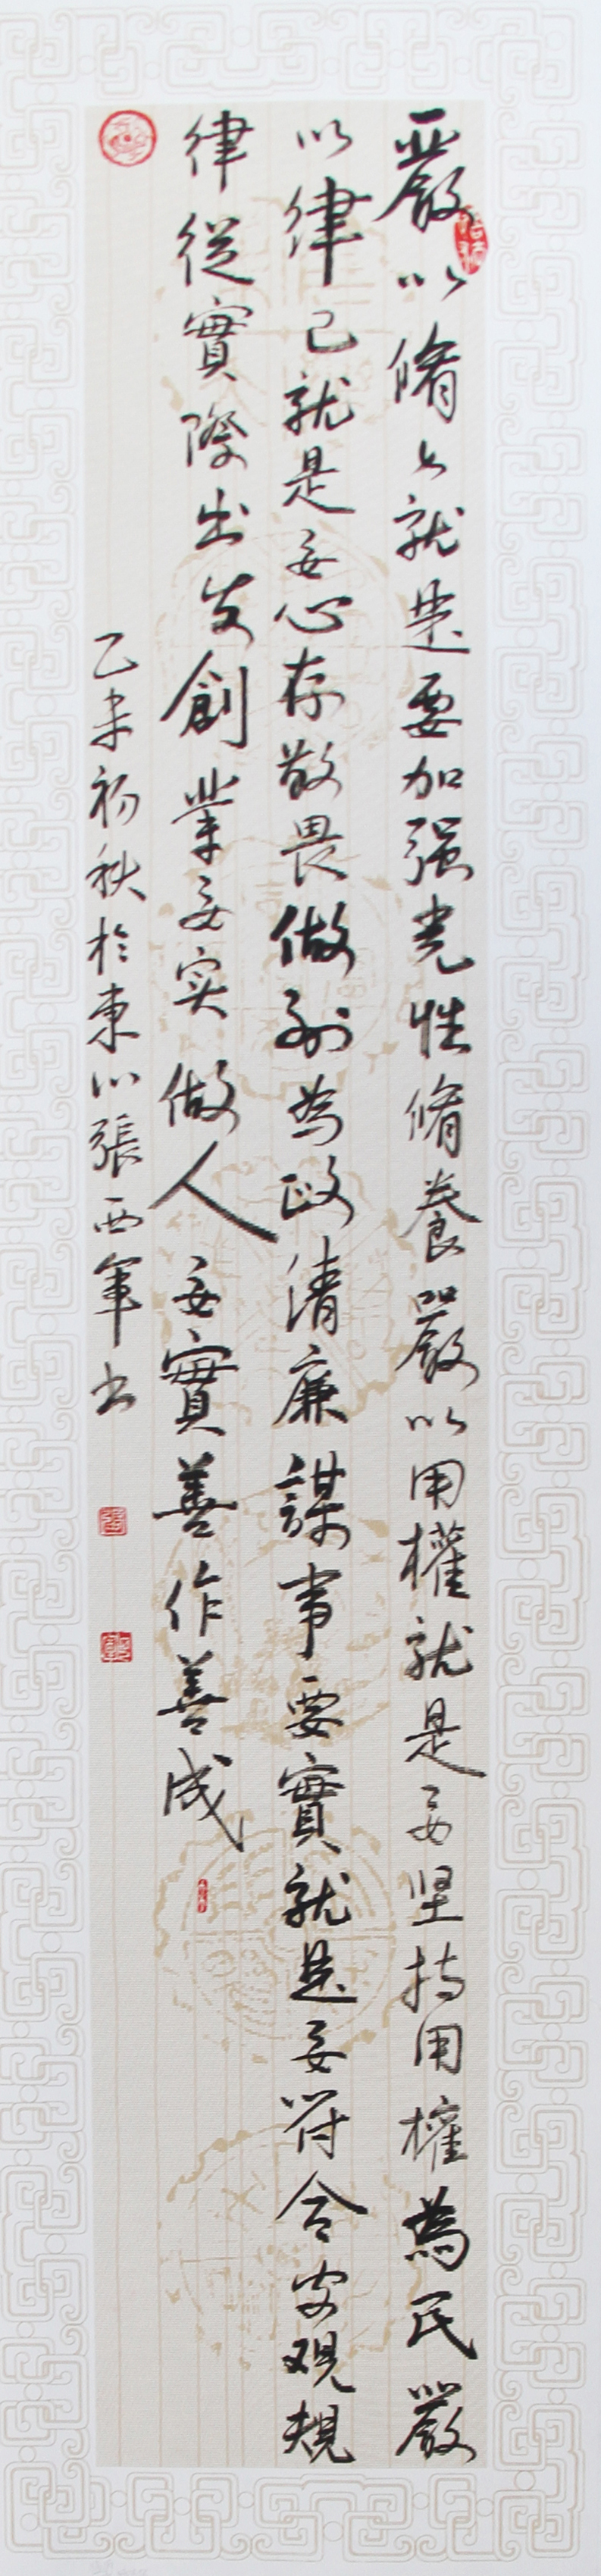 嚴以脩身就是要加强党性脩養嚴以用權就是要坚持用權為民嚴
以律己就是要心存敬畏做到为政清廉謀事要實就是要符合客观規
律從實際出发創業要实做人要實善作善成
乙未初秋於東山張西軍书